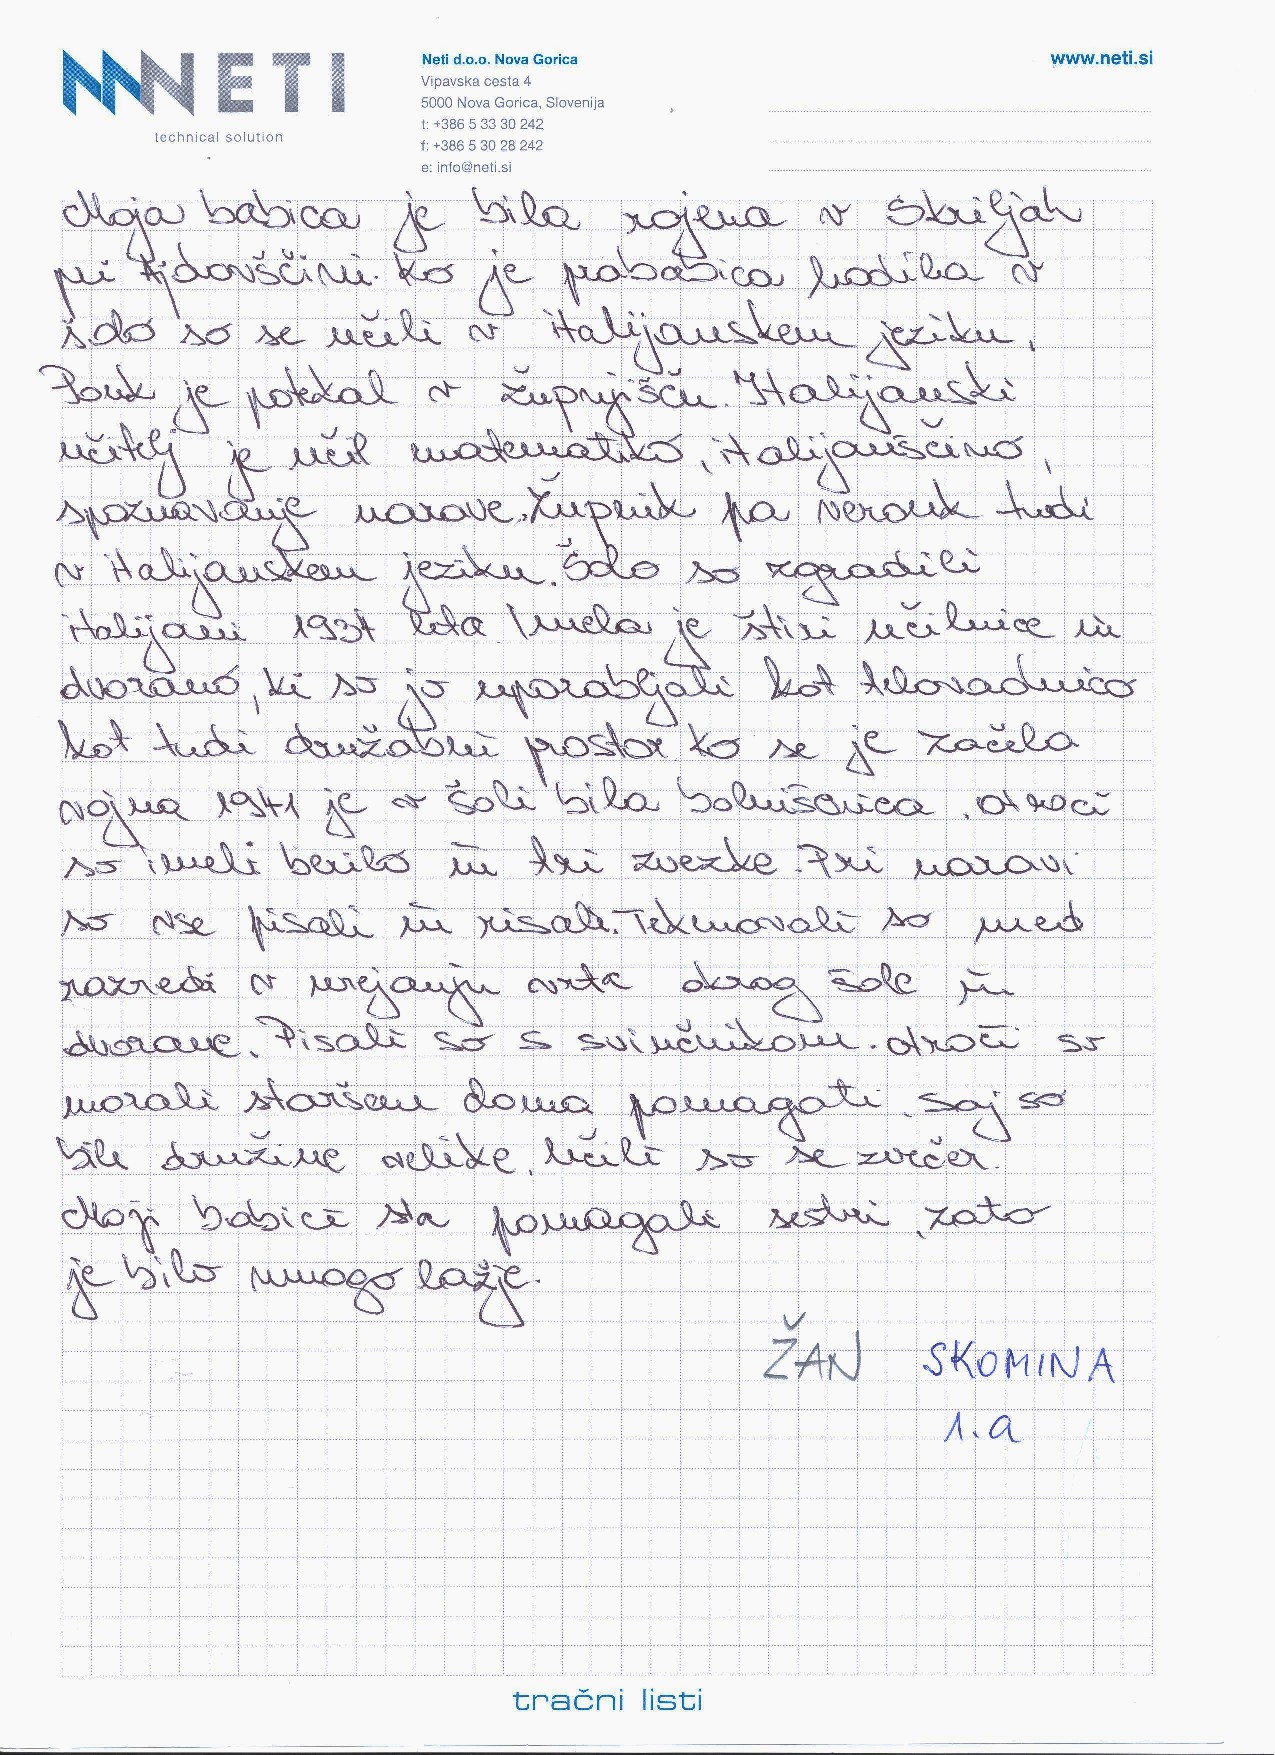 NETI
technical solution
Neti d.o.o. Nova Gorica
Vipavska cesta 4
5000 Nova Gorica, Slovenija
t: +386 5 33 30 242
f: +386 5 30 28 242
e: info@neti.si
www.neti.si
Moja babica je bila rojena v Skriljah
pri Ajdovščini. Ko je prababica hodila v
šolo so se učili v italijanskem jeziku.
Pouk je potekal v župnijišču. Italijanski
učitelj je učil matematiko, italijanščino,
spoznavanje narave. Župnik pa verouk tudi
v italijanskem jeziku. Šolo so zgradili
italijani 1937 leta. Imela je štiri učilnice in
dvorano, ki so jo uporabljali kot telovadnico
kot tudi družabni prostor. ko se je začela
vojna 1941 je v šoli bila bolnišnica. otroci
so imeli berilo in tri zvezke. Pri naravi
so vse pisali in risali. Tekmovali so med
razredi v urejanju vrta okrog šole in
dvorane. Pisali so s svinčnikom. otroci so
morali staršem doma pomagati, saj so
bile družine velike. Učili so se zvečer.
Moji babici sta pomagali sestri, zato
je bilo mnogo lažje.
ŽAN SKOMINA
1.a
tračni listi